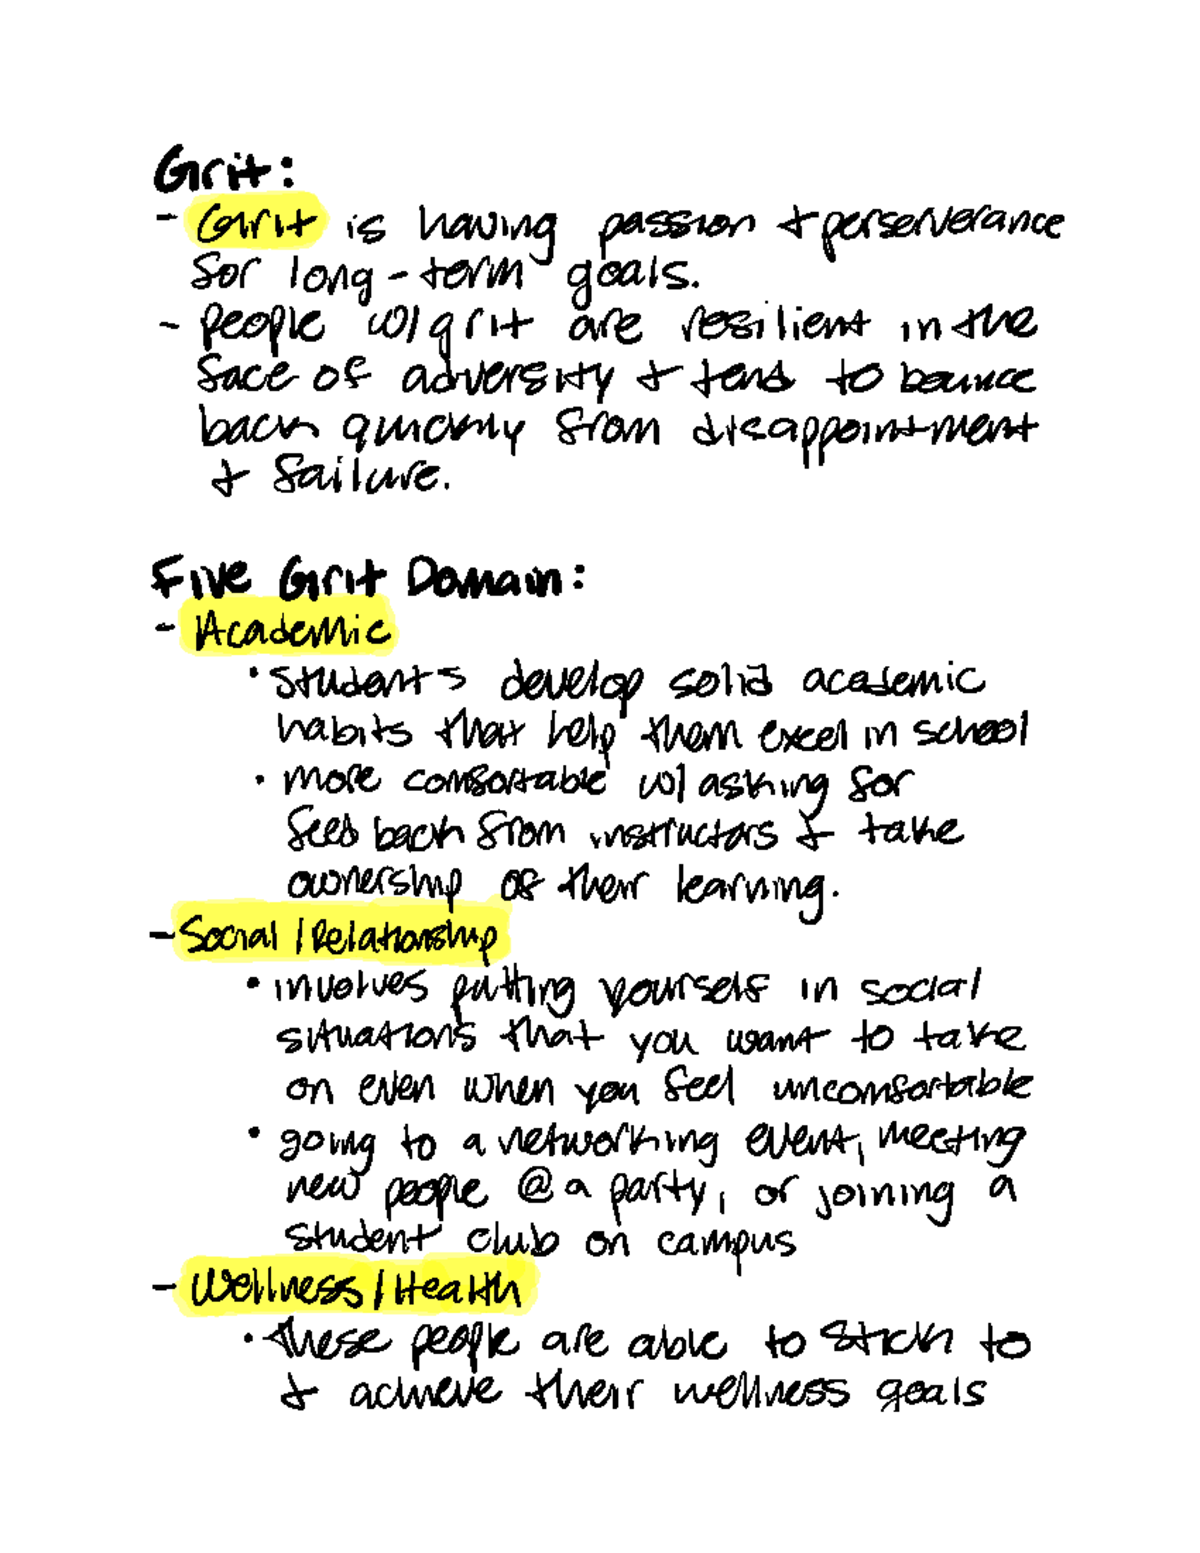 Grit:
- Grit is having passion + perserverance
for long-term goals.
- people w/ grit are resilient in the
face of adversity + tend to bounce
back quickly from disappointment
+ failure.
Five Grit Domain:
- Academic
• students develop solid academic
habits that help them excel in school
• more comfortable w/ asking for
feed back from instructors + take
ownership of their learning.
- Social / Relationship
• involves putting yourself in social
situations that you want to take
on even when you feel uncomfortable
• going to a networking event, meeting
new people @ a party, or joining a
student club on campus
- Wellness / Health
• these people are able to stick to
+ achieve their wellness goals